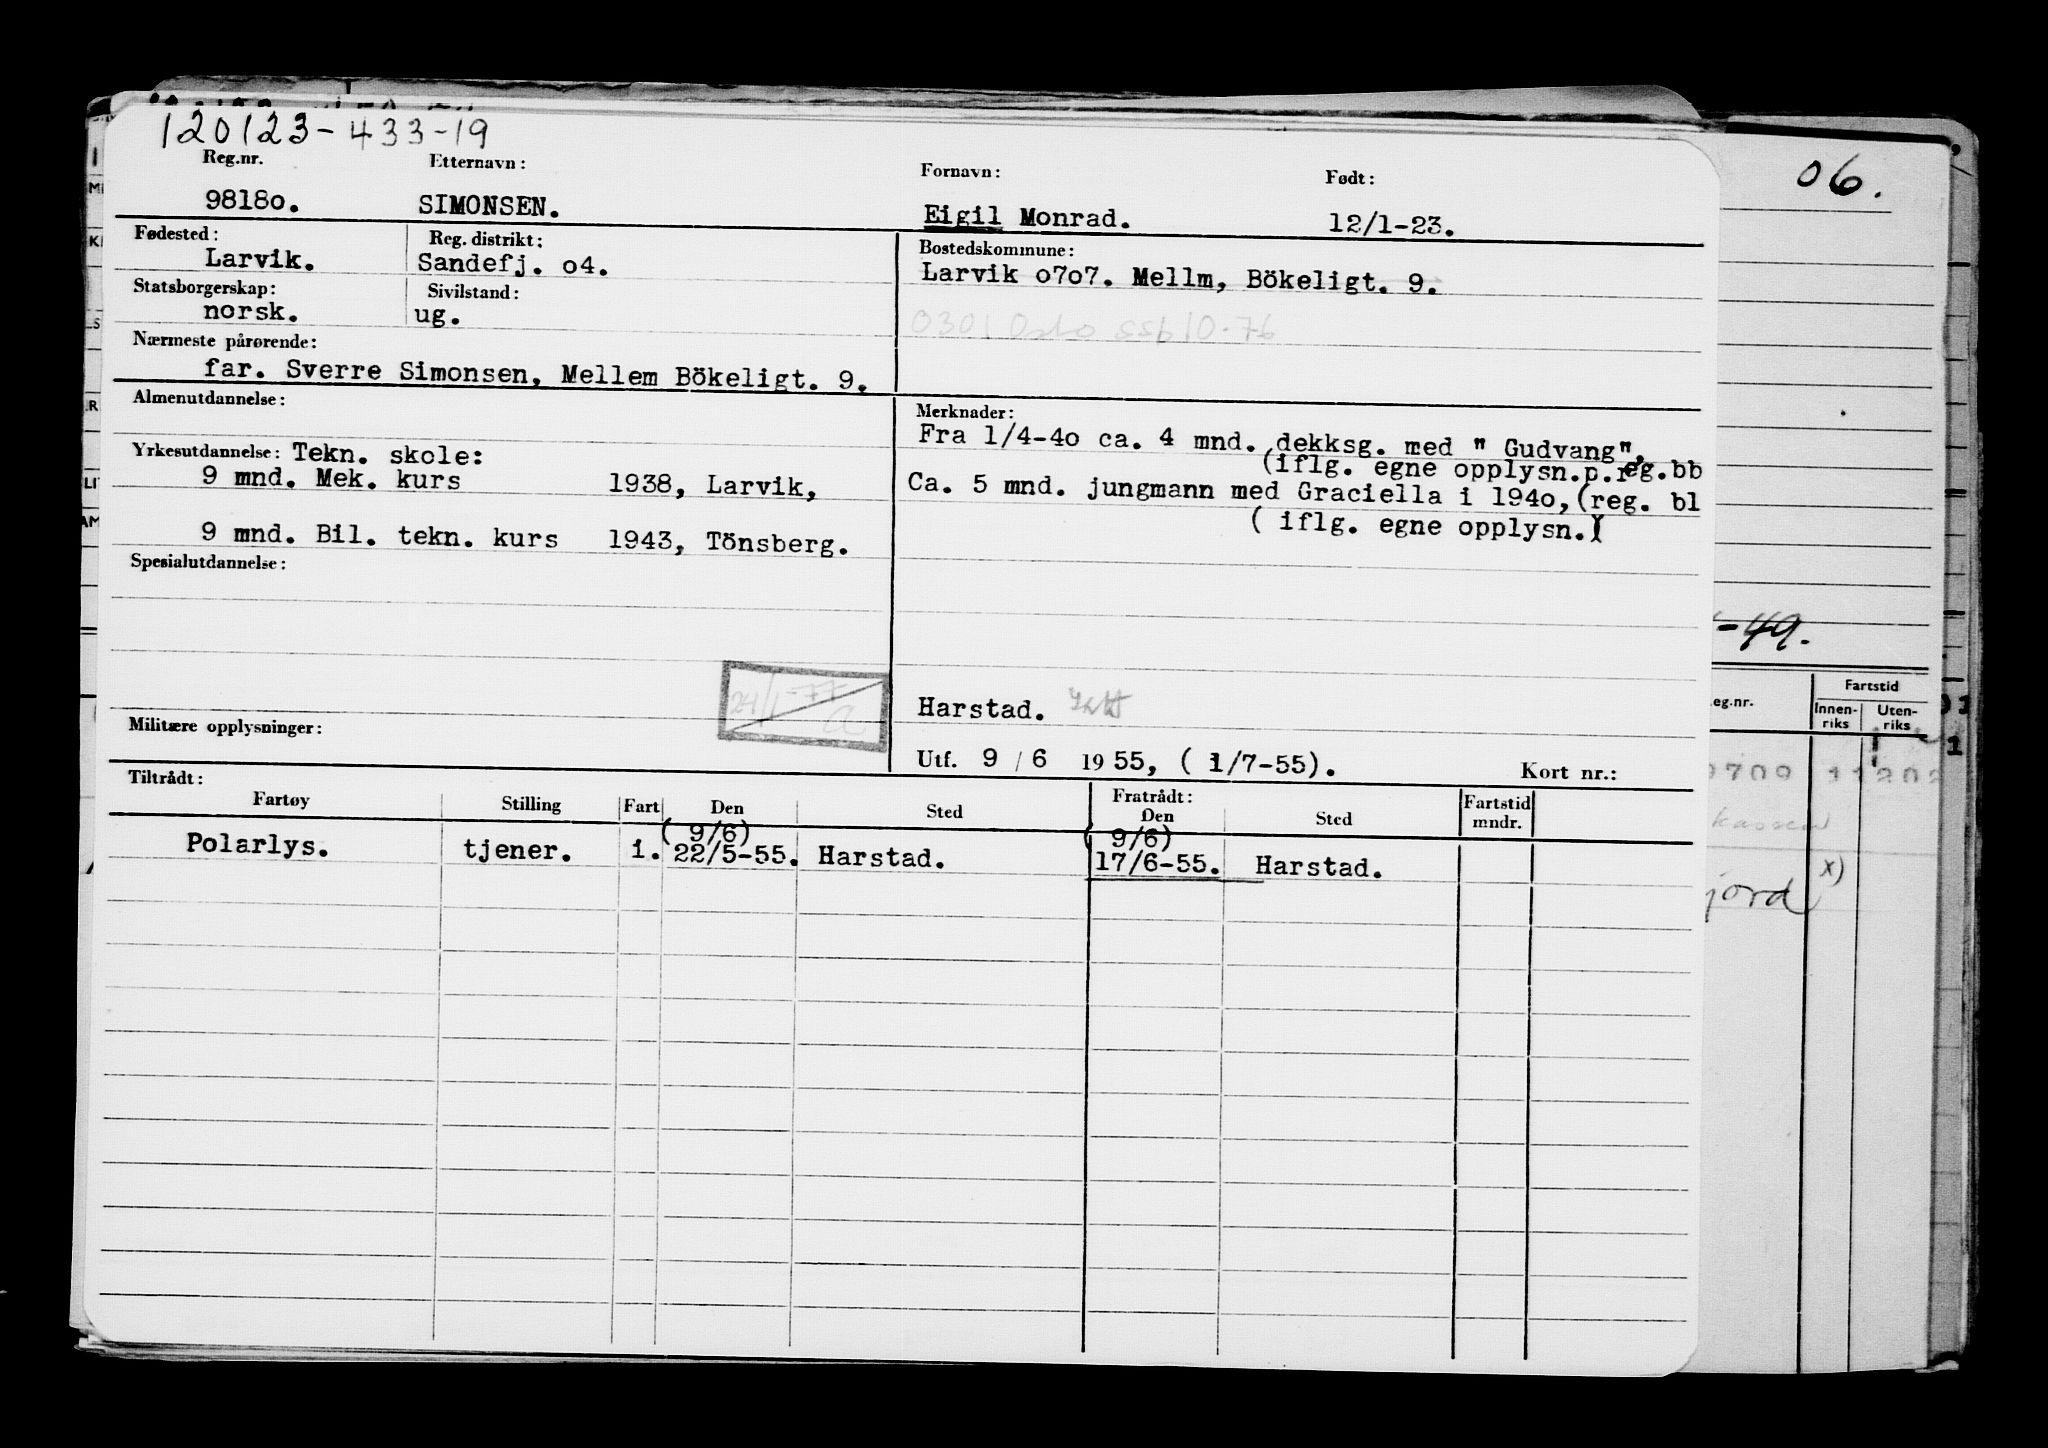 120123-433-19
Reg.nr. Etternavn: Fornavn: Født:
98180. SIMONSEN. Eigil Monrad. 12/1-23.
Fødested: Reg. distrikt: Bostedskommune:
Larvik. Sandefj. o4. Larvik o7o7. Mellm, Bökeligt. 9.
Statsborgerskap: Sivilstand:
norsk. ug.
0301 Oslo ssb 10-76
Nærmeste pårørende:
far. Sverre Simonsen, Mellem Bökeligt. 9.
Almenutdannelse: Merknader:
Fra 1/4-4o ca. 4 mnd. dekksg. med " Gudvang",
Yrkesutdannelse: Tekn. skole: (iflg. egne opplysn.p.reg.bb
9 mnd. Mek. kurs 1938, Larvik, Ca. 5 mnd. jungmann med Graciella i 194o, (reg. bl
9 mnd. Bil. tekn. kurs 1943, Tönsberg. ( iflg. egne opplysn.)
Spesialutdannelse:
24/1-77
Harstad.
Militære opplysninger:
Utf. 9 / 6 1955, ( 1/7-55). Kort nr.:
Tiltrådt: Fratrådt:
Fartøy Stilling Fart Den Sted Den Sted Fartstid mndr.
(9/6) (9/6)
Polarlys. tjener. i. 22/5-55. Harstad. 17/6-55. Harstad.
06.
-49.
eg.nr. Fartstid
Innen-riks Uten-riks
9709 11202
kassen
jord x)